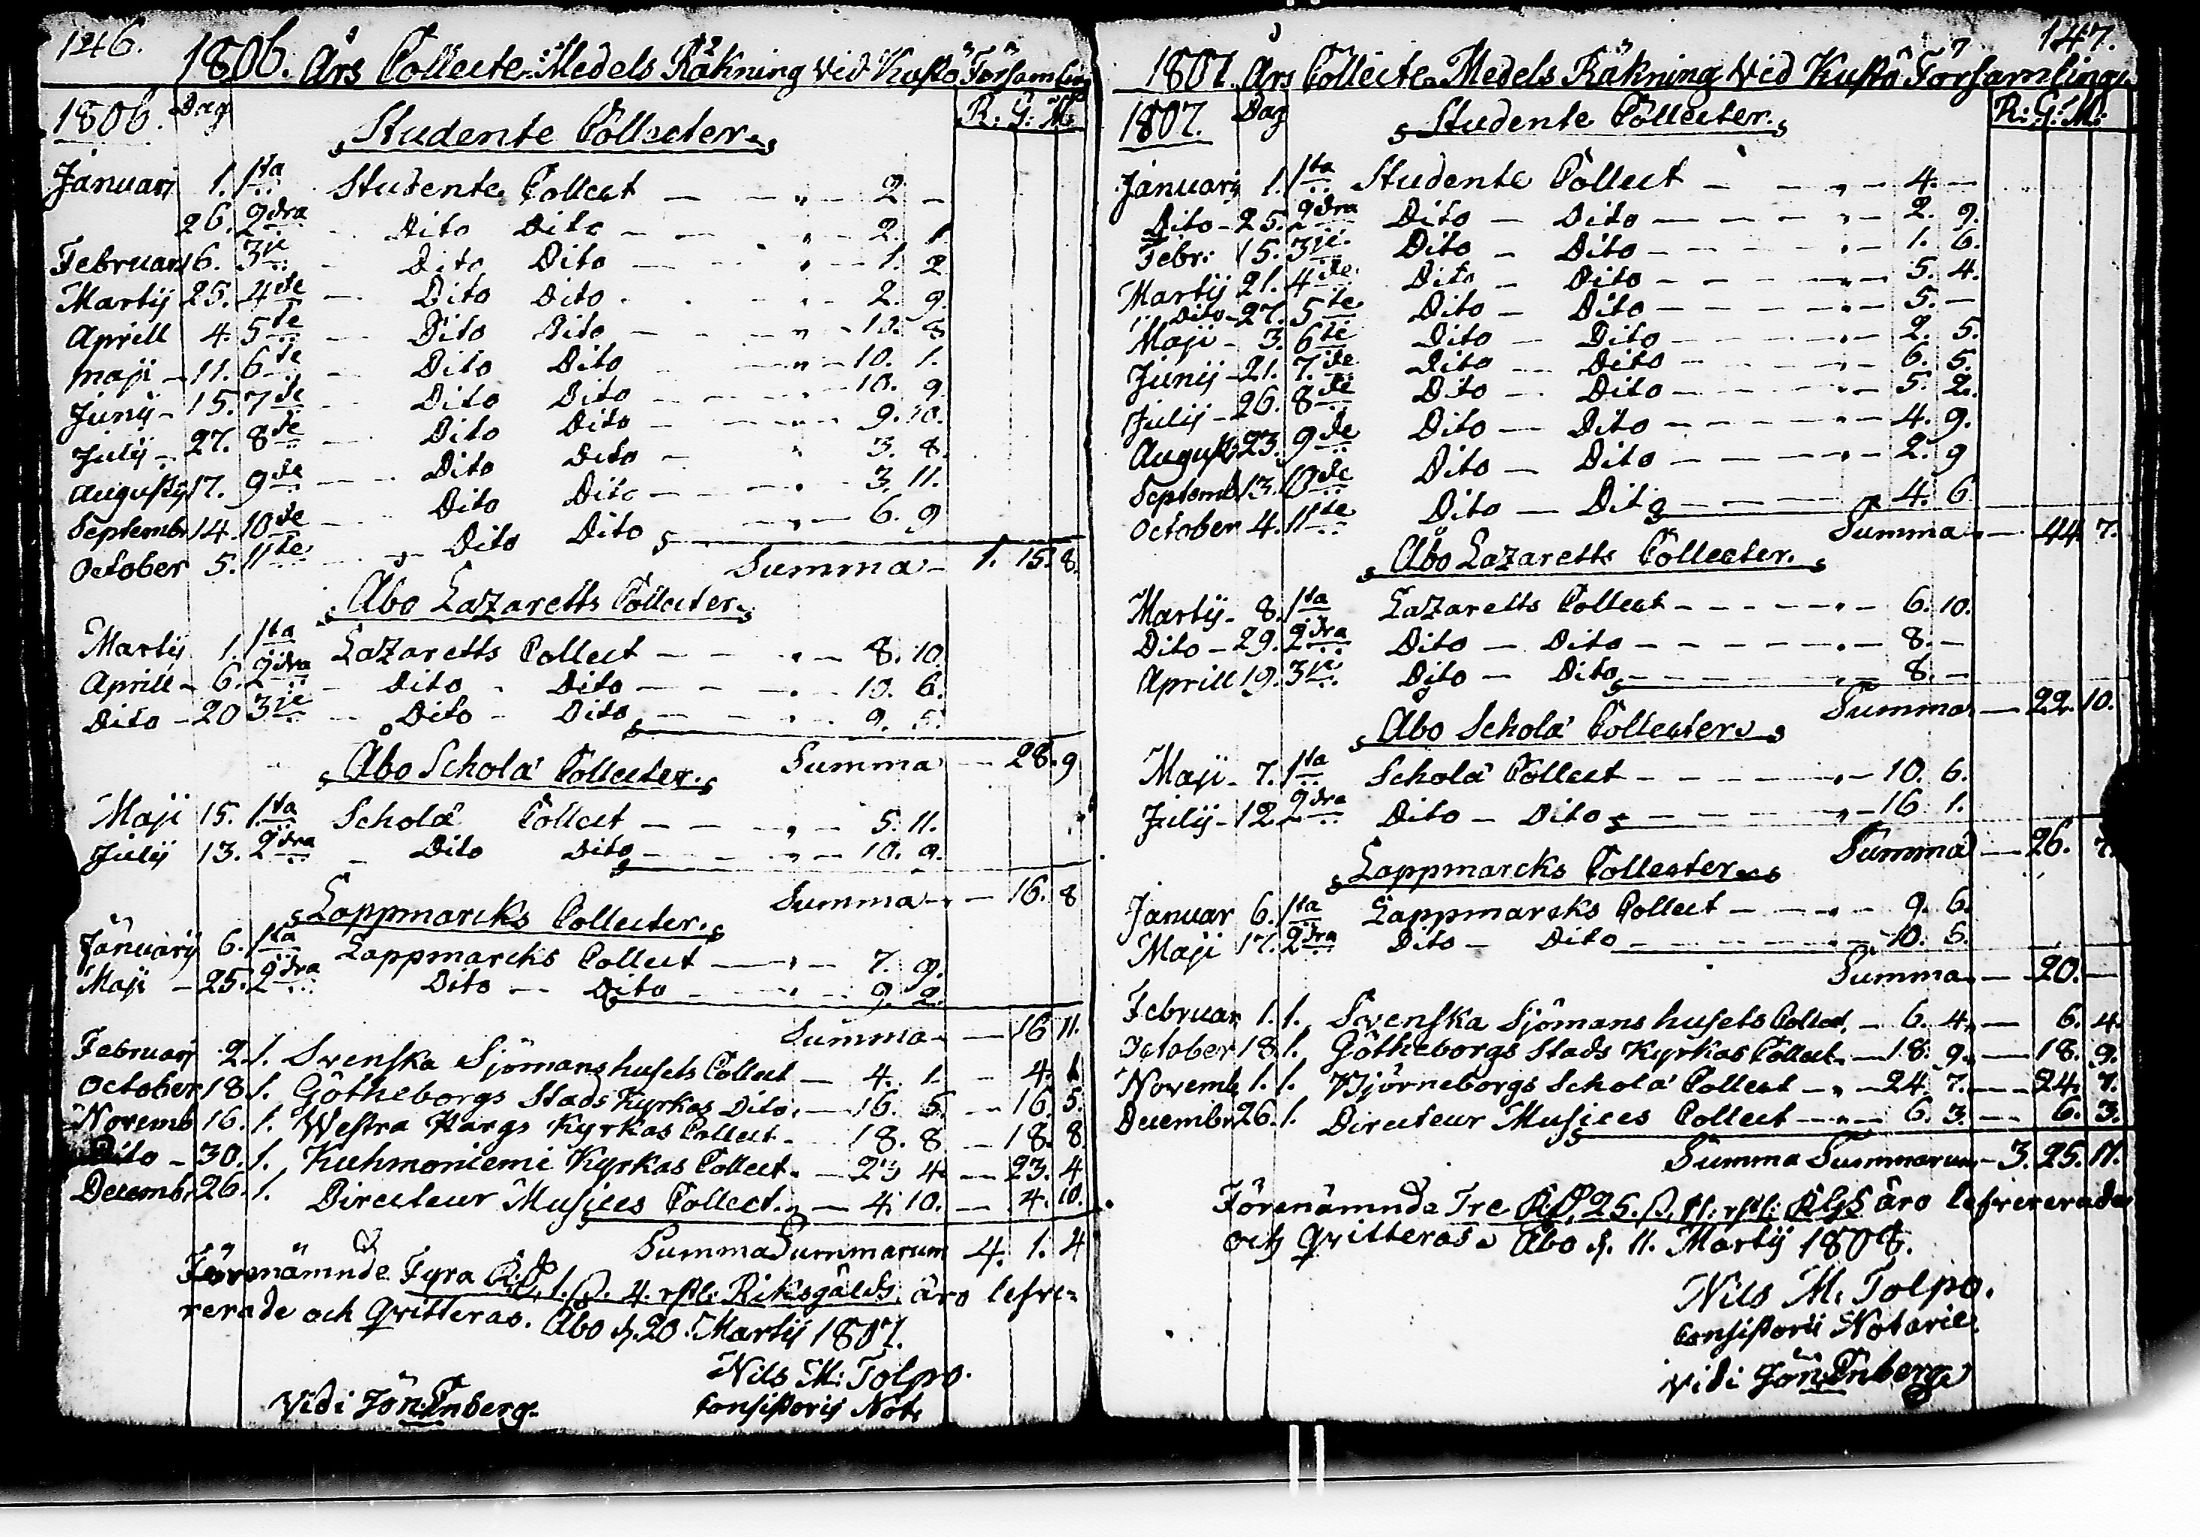 146.
1806. Års Collecte Medels Räkning vid Kustö Församling
1806. Dag R. G: M:
Studente Collecter.
Januari 1. 1sta Studente Collect — — „ — 2 —
26. 2dra Dito Dito — — „ 2. 1.
Februari 16. 3je — Dito Dito — — „ — 1. 2
Martij 25. 4de — Dito Dito . . „ — 2. 9.
Aprill 4. 5te — Dito Dito — — „ — 10. 8
maji — 11. 6te — Dito Dito — „ — 10. 1.
Junij — 15. 7de — Dito Dito — — — 10. 9
July — 27. 8de — Dito Dito — — „ 9. 10.
Augustij 17. 9de — Dito Dito — „ 3. 8.
Septembr 14. 10de — Dito Dito — — — „ — 3. 11.
October 5. 11te — Dito Dito — „ — 6. 9
Summa — 1. 15. 8.
Åbo Lazaretts Collecter.
Martij 1. 1sta Lazaretts Collect — — „ — 8. 10.
Aprill — 6. 2dra — Dito - Dito — — — „ — 10. 6.
Dito — 20 3je — Dito - Dito — — „ 9. 5.
Summa — 28. 9
Åbo Schola Collecter.
Maji 15. 1sta Schola Collect — — „ — 5. 11.
Julij 13. 2dra — Dito Dito — — „ — 10. 9.
Summa — — 16. 8
Lappmarcks Collecter.
Januarij 6. 1sta Lappmarcks Collect — „ — 7. 9.
Maji — 25. 2dra Dito — Dito — — „ — 9. 2.
Summa — — 16 11.
Februarij 2. 1. Svenska Sjömanshusets Collect — 4. 1. — 4. 1
October 18 1. Götheborgs Stads Kyrkas Dito — 16. 5. — 16. 5.
Novemb 16. 1. Westra Kargs Kyrkas Collect — 18. 8 — 18. 8
Dito — 30. 1. Kuhmoniemi Kyrkas Collect — 23 4 — 23. 4
Decembr 26. 1. Directeur Musices Collect. — 4. 10. — 4. 10.
Summa Summarum 4. 1. 4
Förenämnde Fyra R:d. 1. s. 4. rst: Riksgälds äro lefve-
rerade och qvitteras. Åbo d. 20. Martij 1807.
Nils M: Tolpo.
Consistorij Not.
Vidi Jön: Enberg.
147.
1807. Års Collecte Medels Räkning Vid Kustö Församlinge
1807. Dag R: G: M:
Studente Collecter.
Januarij 1. 1sta Studente Collect — — „ — 4. —
Dito — 25. 2dra Dito — Dito — — — „ — 2. 9.
Febr: 15. 3je. Dito — Dito — — „ — 1. 6.
Martij 21. 4de Dito — Dito — — — „ — 5. 4.
Dito — 27. 5te Dito — Dito — — — „ — 5. —
Maji — 3. 6te Dito — Dito — — — „ — 2. 5.
Junij — 21. 7de Dito — Dito — — — „ — 6. 5.
Julij — 26. 8de Dito — Dito — — — „ — 5. 2.
August 23. 9de Dito — Dito — — — „ — 4. 9.
Septemb 13. 10de Dito — Dito — — — „ — 2. 9
October 4. 11te Dito — Dito — — — 4. 6
Summa — 44. 7.
Åbo Lazaretts Collecter.
Martij — 8. 1sta Lazaretts Collect — — — „ — 6. 10.
Dito — 29. 2dra Dito — Dito — — — „ — 8. —
Aprill 19. 3je Dito — Dito — — — 8. —
Summa — 22. 10.
Åbo Schola Collecter
Maji — 7. 1sta Schola Collect — — — „ — 10. 6.
Julij — 12 2dra Dito — Dito — — — „ — 16 1.
Summa — 26. 7.
Lappmarcks Collecter
Januar 6. 1sta Lappmarcks Collect — — „ — 9. 6.
Maji 17. 2dra Dito — Dito — — — „ — 10. 5.
Summa — 20. —
Februar 1. 1. Svenska Sjömanshusets Collect — 6. 4. — 6. 4.
October 18 1. Götheborgs Stads Kyrkas Collect — 18. 9. — 18. 9.
Novemb 1. 1. Björneborgs Schola Collect — „ — 24. 7. — 24. 7.
Decembr 26. 1. Directeur Musices Collect — „ — 6. 3. — 6. 3.
Summa Summarum — 3. 25. 11.
Förenämnde Tre R:d. 25. s. 11. rst: RGS äro lefvererade
och qvitteras. Åbo d. 11. Martij 1808.
Nils M. Tolpo.
Consistorii Notarie.
Vidi Jön: Enberg